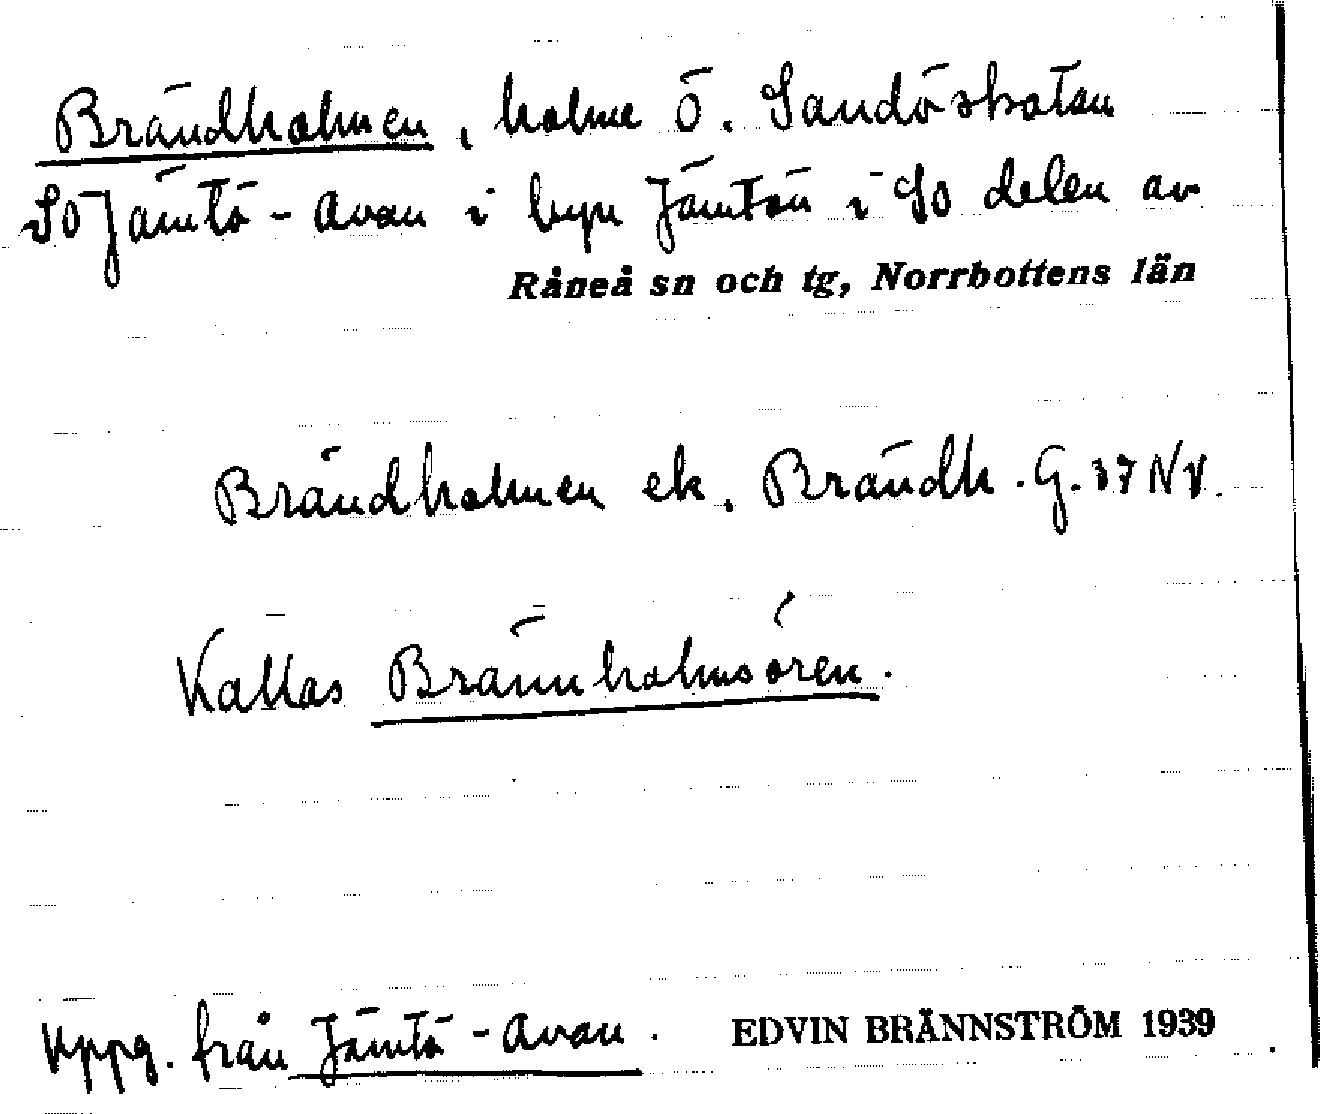 Brändholmen, holme ö. Sandöskatan
SO Jämtö-Avan i byn Jämtön i SO delen av
Råneå sn och tg, Norrbottens län
Brändholmen ek. Brändh. G. 37 NV.
Kallas Brännholmsören.
Uppg. från Jämtö-Avan. EDVIN BRÄNNSTRÖM 1939